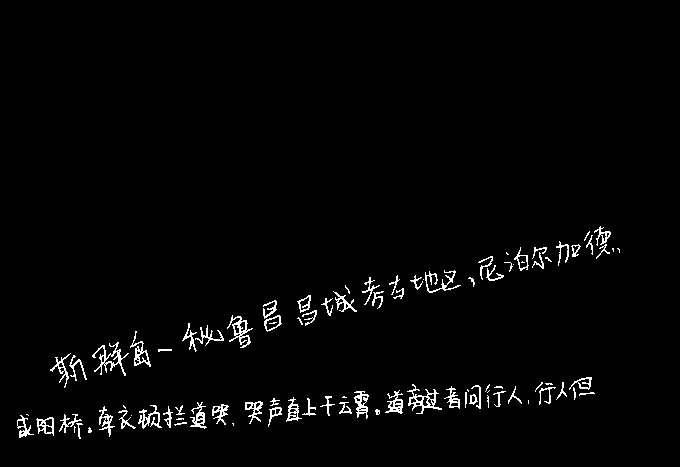 斯群岛－秘鲁昌昌城考古地区,尼泊尔加德.
咸阳桥。牵衣顿拦道哭,哭声直上干云霄。道旁过者问行人,行人但